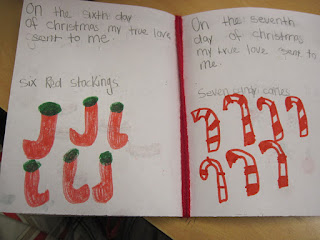 On the sixth day
of christmas my true love
sent to me.
six Red stockings
On the seventh
day of christmas
my true love sent to
me.
Seven candy canes